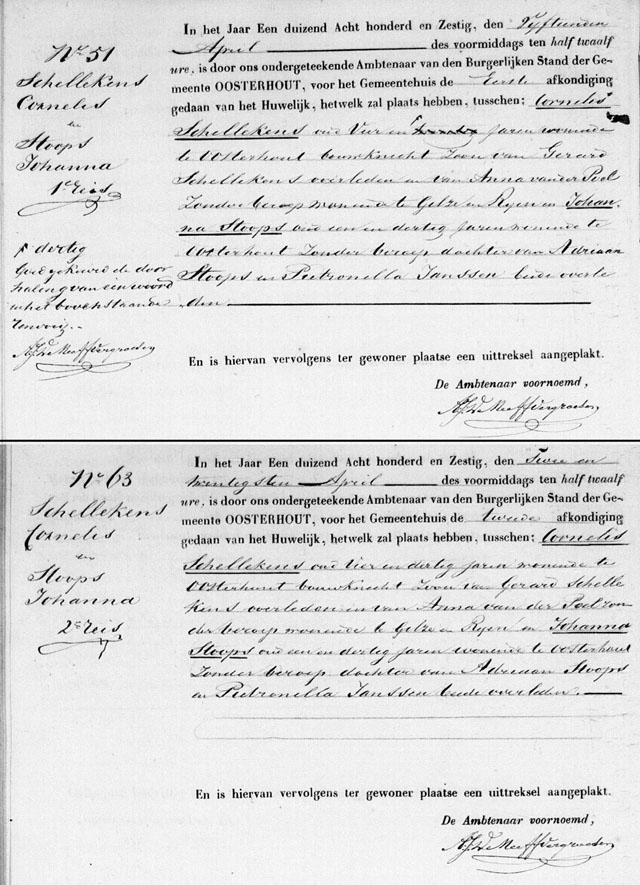 Nº 51
Schellekens
Cornelis
en
Stoops
Johanna
1e Reis
dertig
Goedgekeurd de door
haling van een woord
en het bovenstaande
renvooi.
In het Jaar Een duizend Acht honderd en Zestig, den Vyftienden
April des voormiddags ten half twaalf
ure, is door ons ondergeteekende Ambtenaar van den Burgerlijken Stand der Ge-
meente OOSTERHOUT, voor het Gemeentehuis de Eerste afkondiging
gedaan van het Huwelijk, hetwelk zal plaats hebben, tusschen; Cornelis
Schellekens oud Vier en twintig jaren wonende
te Oosterhout bouwknecht Zoon van Gerard
Schellekens overleden en van Anna van der Poel
Zonder beroep wonende te Gilze en Reyen en Johan
na Stoops oud een en dertig jaren wonende te
Oosterhout Zonder beroep dochter van Adriaan
Stoops en Pietronella Janssen beide overle
den
En is hiervan vervolgens ter gewoner plaatse een uittreksel aangeplakt.
De Ambtenaar voornoemd,
Nº 63
Schellekens
Cornelis
en
Stoops
Johanna
2e Reis
In het Jaar Een duizend Acht honderd en Zestig, den Twee en
twintigsten April des voormiddags ten half twaalf
ure, is door ons ondergeteekende Ambtenaar van den Burgerlijken Stand der Ge-
meente OOSTERHOUT, voor het Gemeentehuis de tweede afkondiging
gedaan van het Huwelijk, hetwelk zal plaats hebben, tusschen; Cornelis
Schellekens oud Vier en dertig jaren wonende te
Oosterhout bouwknecht Zoon van Gerard Schelle
kens overleden en van Anna van der Poel zon
der beroep wonende te Gilze en Reyen en Johanna
Stoops oud een en dertig jaren wonende te Oosterhout
Zonder beroep dochter van Adriaan Stoops
en Pietronella Janssen beide overleden.
En is hiervan vervolgens ter gewoner plaatse een uittreksel aangeplakt.
De Ambtenaar voornoemd,